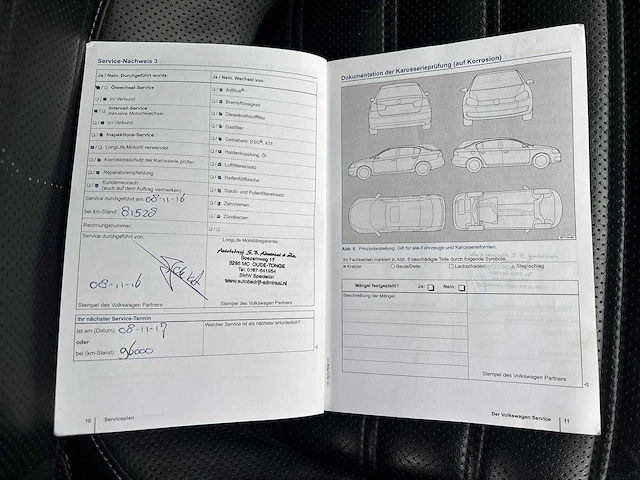 Service-Nachweis 3
Ja / Nein, Durchgeführt wurde:
Ölwechsel-Service
im Verbund
Intervall-Service
inklusive Motorölwechsel
im Verbund
Inspektions-Service
LongLife Motoröl verwendet
Korrosionsschutz der Karosserie prüfen
Reparaturempfehlung
Kundenwunsch
(auch auf dem Auftrag vermerken)
Service durchgeführt am: 08-11-16
bei km-Stand: 81528
Rechnungsnummer:
Service durchgeführt von:
08-11-16
Stempel des Volkswagen Partners
Ja / Nein, Wechsel von:
AdBlue®
Bremsflüssigkeit
Dieselkraftstofffilter
Gasfilter
Getriebeöl: DSG®, ATF
Haldexkupplung: Öl
Luftfiltereinsatz
Reifenfüllflasche
Staub- und Pollenfiltereinsatz
Zahnriemen
Zündkerzen
LongLife Mobilitätsgarantie:
Boezemweg 17
3255 MC OUDE-TONGE
Tel. 0187-641954
BMW Specialist
Stempel des Volkswagen Partners
Ihr nächster Service-Termin
ist am (Datum): 08-11-17
oder
bei (km-Stand): 96000
Welcher Service ist als nächster erforderlich?
10 Serviceplan
Dokumentation der Karosserieprüfung (auf Korrosion)
Abb. 6 Prinzipdarstellung. Gilt für alle Fahrzeuge und Karosserieformen.
Ihr Fachbetrieb markiert in Abb. 6 beschädigte Teile durch folgende Symbole:
x Kratzer ○ Beule/Delle □ Lackschaden △ Steinschlag
Mängel festgestellt? Ja: Nein:
Beschreibung der Mängel:
Stempel des Volkswagen Partners
Der Volkswagen Service 11